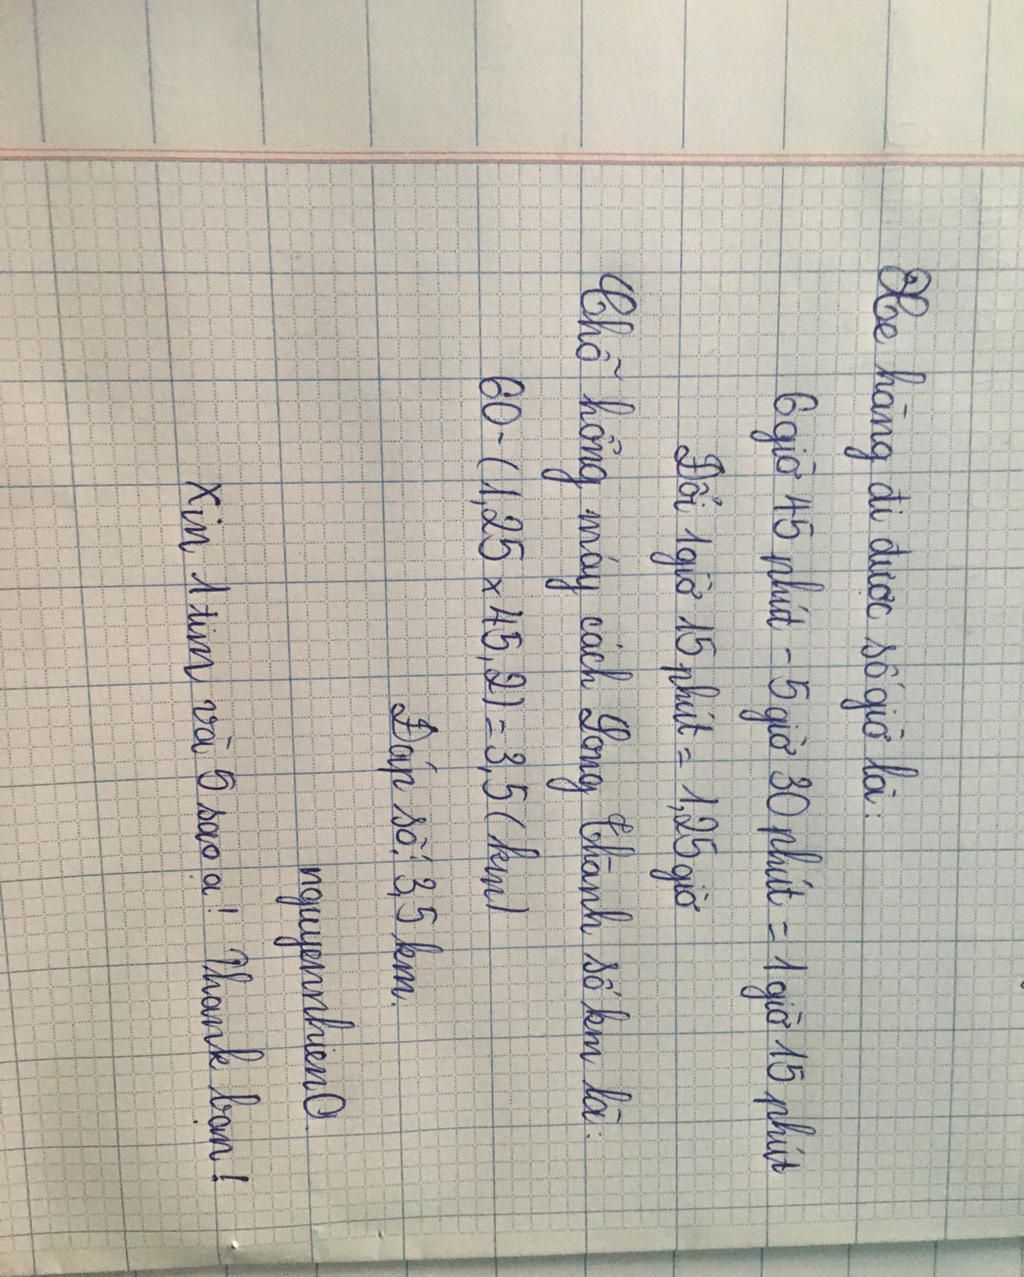 Xe hàng đi được số giờ là:
6 giờ 45 phút - 5 giờ 30 phút = 1 giờ 15 phút
Đổi 1 giờ 15 phút = 1,25 giờ
Chỗ hỏng máy cách Long Thành số km là:
60 - (1,25 x 45,2) = 3,5 (km)
Đáp số: 3,5 km.
nguyennhien0
Xin 1 tim và 5 sao ạ! Thank bạn!